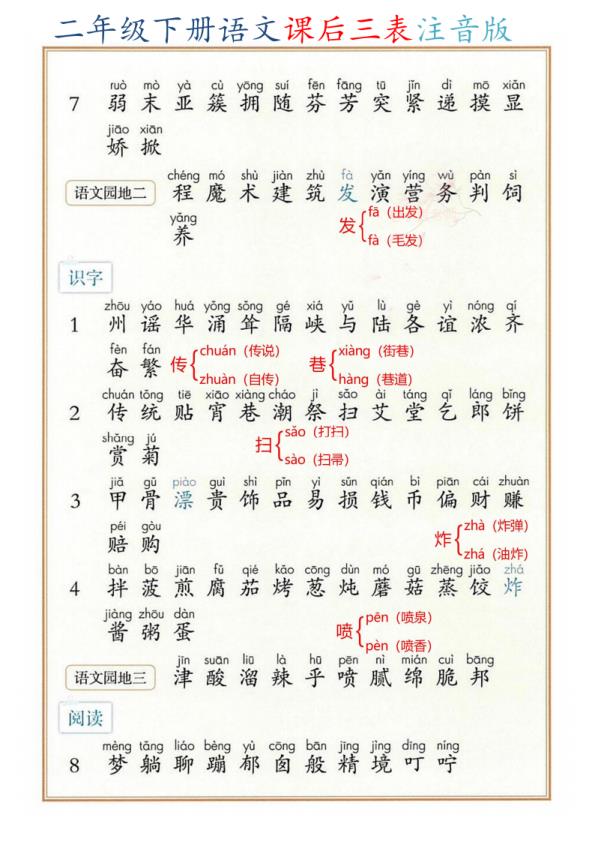 二年级下册语文课后三表注音版
ruò mò yà cù yōng suí fēn fāng tū jǐn dì mō xiǎn
7 弱 末 亚 簇 拥 随 芬 芳 突 紧 递 摸 显
jiāo xiān
娇 掀
chéng mó shù jiàn zhù fà yǎn yíng wù pàn sì
语文园地二 程 魔 术 建 筑 发 演 营 务 判 饲
yǎng
养
发 fā（出发）
fà（毛发）
识字
zhōu yáo huá yǒng sǒng gé xiá yǔ lù gè yì nóng qí
1 州 谣 华 涌 耸 隔 峡 与 陆 各 谊 浓 齐
fèn fán
奋 繁
传 chuán（传说）
zhuàn（自传）
巷 xiàng（街巷）
hàng（巷道）
chuán tǒng tiē xiāo xiàng cháo jì sǎo ài táng qǐ láng bǐng
2 传 统 贴 宵 巷 潮 祭 扫 艾 堂 乞 郎 饼
shǎng jú
赏 菊
扫 sǎo（打扫）
sào（扫帚）
jiǎ gǔ piào guì shì pǐn yì sǔn qián bì piān cái zhuàn
3 甲 骨 漂 贵 饰 品 易 损 钱 币 偏 财 赚
péi gòu
赔 购
炸 zhà（炸弹）
zhá（油炸）
bàn bō jiān fǔ qié kǎo cōng dùn mó gū zhēng jiǎo zhá
4 拌 菠 煎 腐 茄 烤 葱 炖 蘑 菇 蒸 饺 炸
jiàng zhōu dàn
酱 粥 蛋
喷 pēn（喷泉）
pèn（喷香）
jīn suān liū là hū pēn nì mián cuì bāng
语文园地三 津 酸 溜 辣 乎 喷 腻 绵 脆 邦
阅读
mèng tǎng liáo bèng yù cōng bān jīng jìng dīng níng
8 梦 躺 聊 蹦 郁 囱 般 精 境 叮 咛